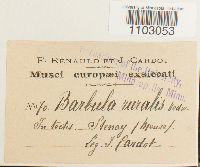 1103053
F. RENAULD ET J. CARDOT.
Musci europæi exsiccati
No 90. Barbula ruralis Hedw.
In tectis. — Stenay (Meuse).
Leg. J. Cardot